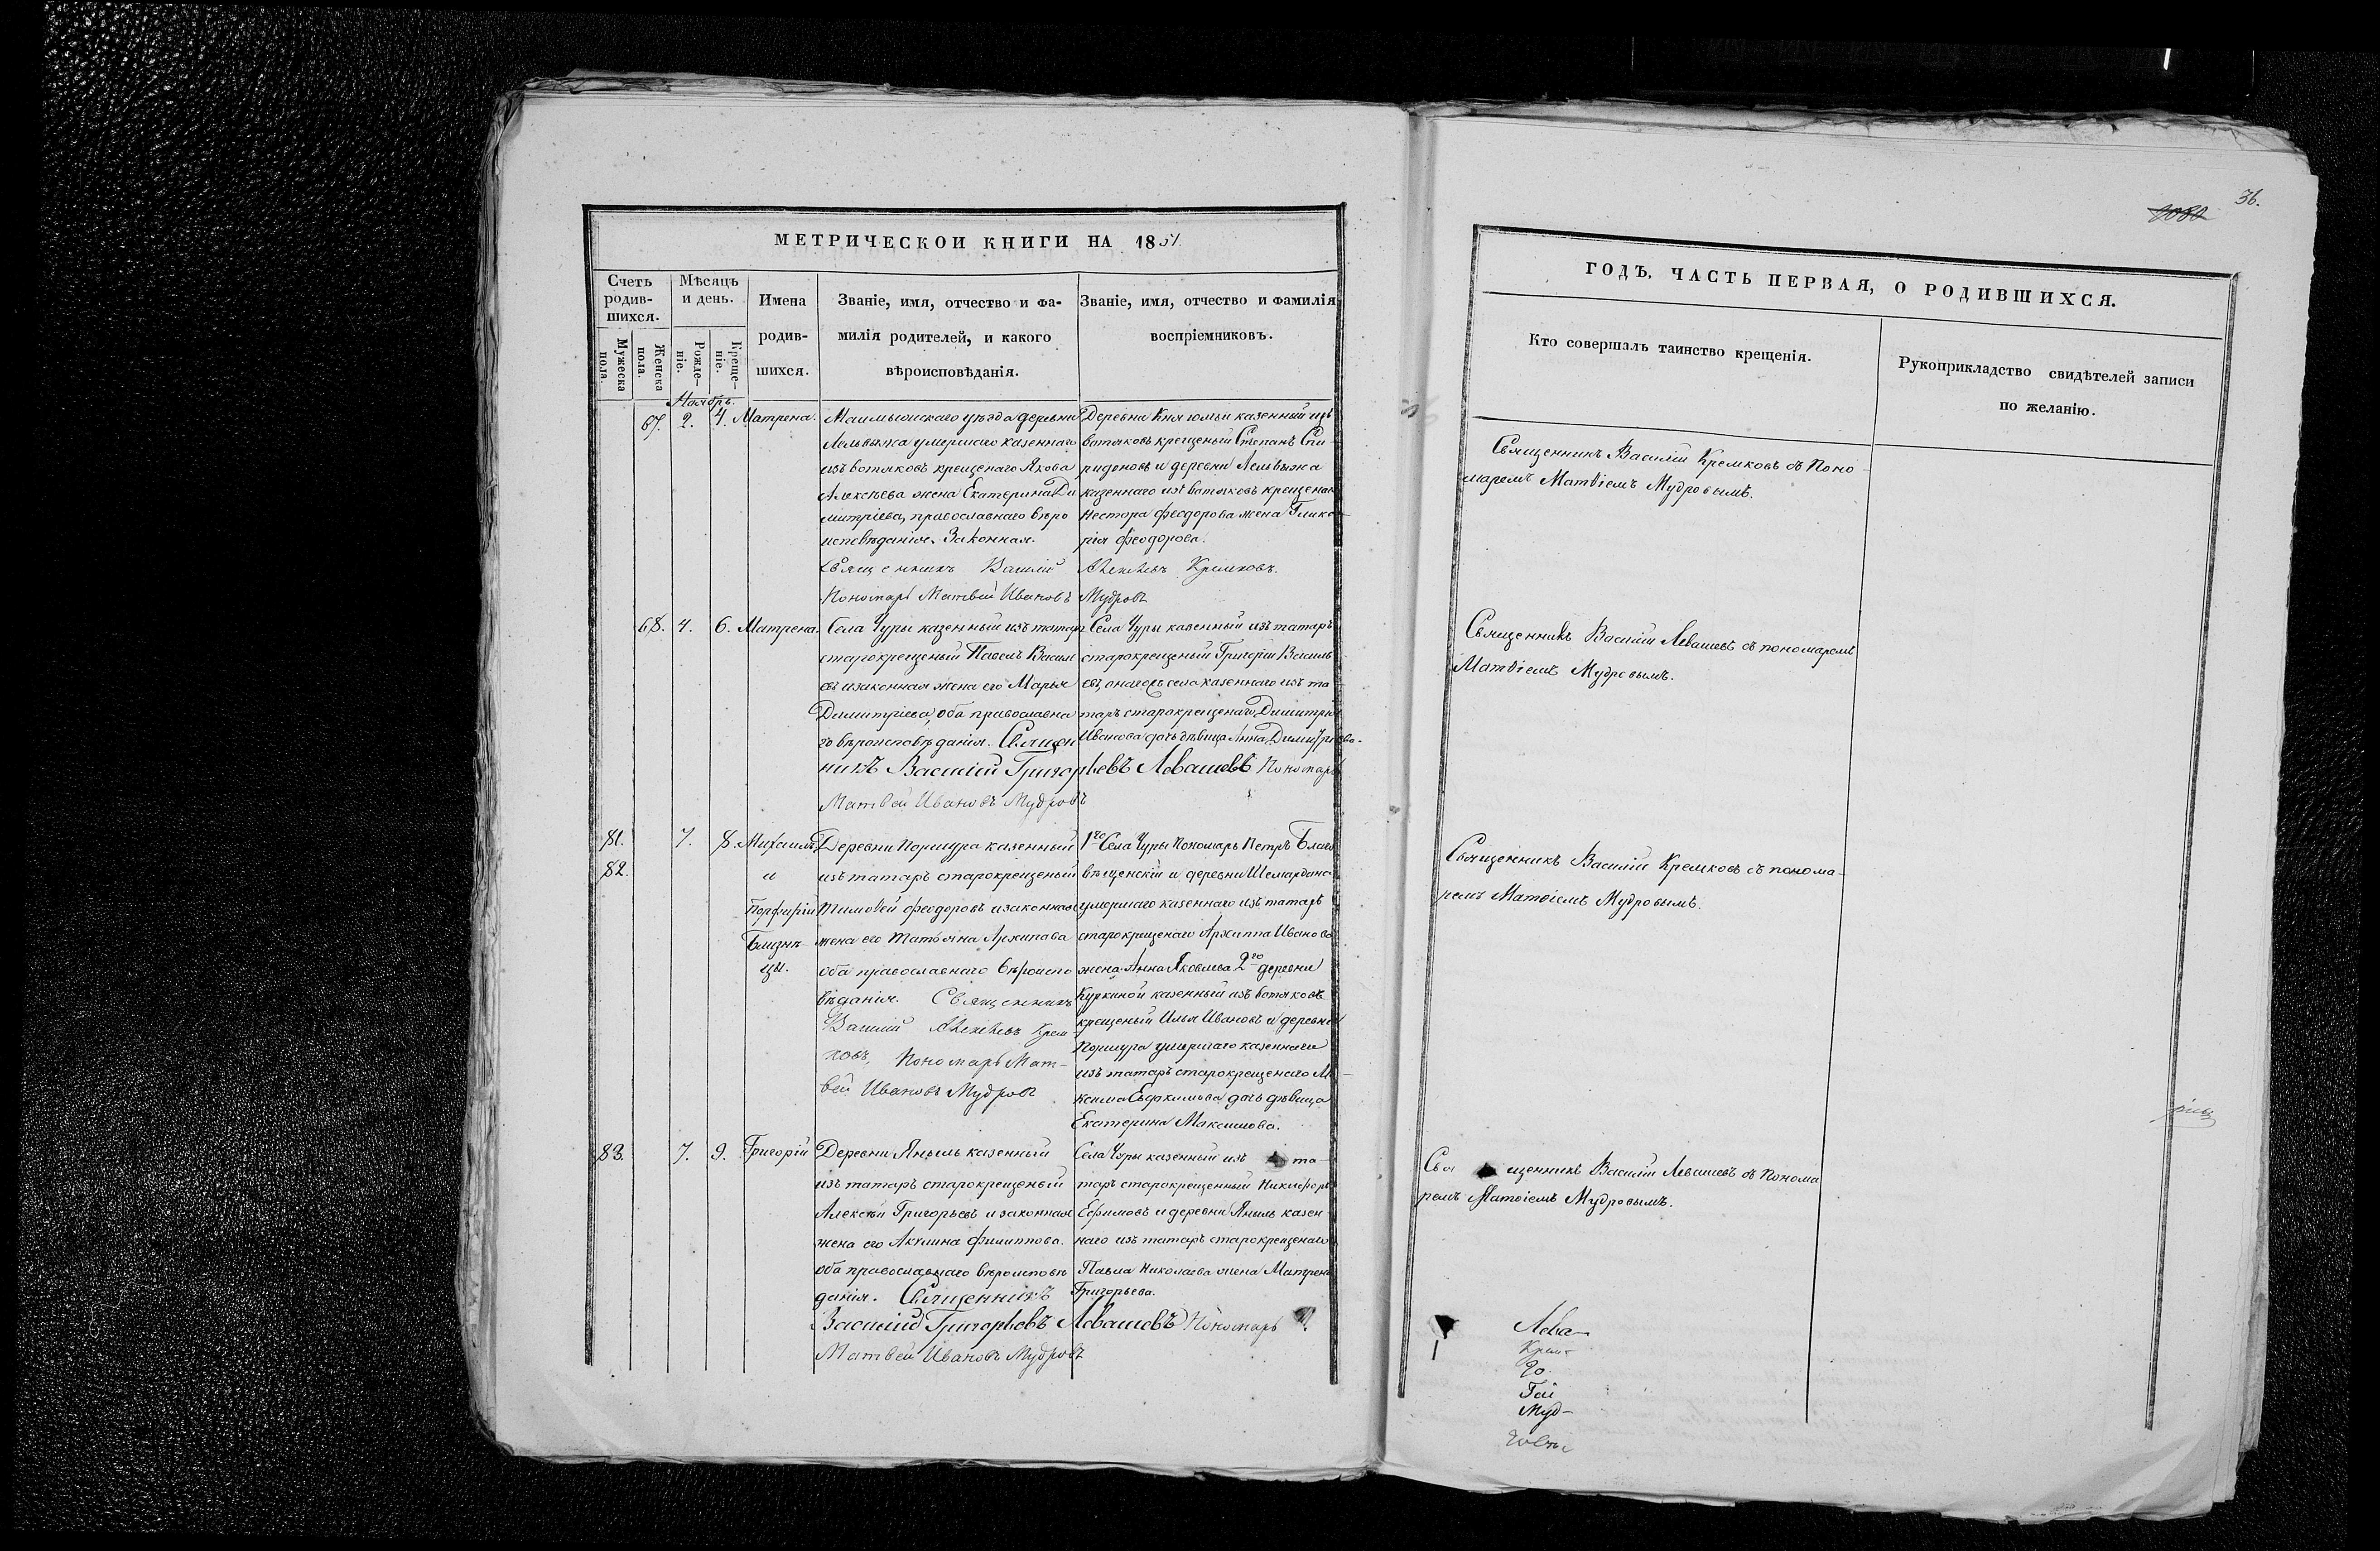 МЕТРИЧЕСКОИ КНИГИ НА 1851.
Счетъ родив-шихся.
Мужеска пола.
Женска пола.
Мѣсяцъ и день.
Рожде-ніе.
Креще-ніе.
Имена родив-шихся.
Званіе, имя, отчество и фа-
милія родителей, и какого
вѣроисповѣданія.
Званіе, имя, отчество и фамилія
воспріемниковъ.
Ноябрь.
67. 2. 4. Матрена.
Малмыжскаго уѣзда деревни
умершаго казеннаго
изъ вотяковъ крещенаго Якова
Алексѣева жена Екатерина Ди
митріева, православнаго вѣро
исповѣданія. Законная.
Деревни Кня юмьи казенный изъ
вотяковъ крещеный Степанъ Спи-
ридоновъ и деревни
казеннаго изъ вотяковъ крещенаго
Нестора Феодорова жена Глике-
рія Феодорова.
Священникъ Василій Алексѣевъ Кремковъ.
Пономарь Матвей Ивановъ Мудровъ
68. 4. 6. Матрена.
Села Чуры казенный изъ татаръ
старокрещеный Павелъ Василь
евъ и законная жена его Марья
Димитріева, оба православна
го вѣроисповѣданія.
Села Чуры казенный изъ татаръ
старокрещеный Григорій Василь
евъ, онагожъ села казеннаго изъ та-
таръ старокрещенаго Димитрія
Иванова дочь дѣвица Анна Димитріева.
Священ
никъ Василій Григорьевъ Левашевъ Пономарь
Матвей Ивановъ Мудровъ
81. 7. 8. Михаилъ
82. и
Порфирій
Близне-
цы.
Деревни Поршура казенный
изъ татаръ старокрещеный
Тимофей Феодоровъ и законная
жена его Татьяна Архипова
оба православнаго вѣроиспо
вѣданія. Священникъ
Василій Алексѣевъ Крем-
ковъ, Пономарь Мат-
вей Ивановъ Мудровъ
1го Села Чуры Пономарь Петръ Благо
вѣщенскій и деревни Шемордана
умершаго казеннаго изъ татаръ
старокрещенаго Архипа Иванова
жена Анна Яковлева 2го деревни
Куркиной казенный изъ вотяковъ
крещеный Илья Ивановъ и деревни
Поршура умершаго казеннаго
изъ татаръ старокрещенаго Ма-
ксима Евфимова дочь дѣвица
Екатерина Максимова.
83. 7. 9. Григорій
Деревни Яныль казенный
изъ татаръ старокрещеный
Алексѣй Григорьевъ и законная
жена его Акулина Филиппова.
оба православнаго вѣроисповѣ
данія. Священникъ
Села Чуры казенный изъ та-
таръ старокрещенный Никифоръ
Ефимовъ и деревни Яныль казен-
наго изъ татаръ старокрещенаго
Павла Николаева жена Матрена
Григорьева.
Василій Григорьевъ Левашевъ Пономарь
Матвей Ивановъ Мудровъ
36.
ГОДЪ. ЧАСТЬ ПЕРВАЯ, О РОДИВШИХСЯ.
Кто совершалъ таинство крещенія.
Рукоприкладство свидѣтелей записи
по желанію.
Священникъ Василій Кремковъ съ Поно-
маремъ Матѳіемъ Мудровымъ.
Священникъ Василій Левашевъ съ пономаремъ
Матѳіемъ Мудровымъ.
Священникъ Василій Кремковъ съ понома-
ремъ Матѳіемъ Мудровымъ.
Свя щенникъ Василій Левашевъ съ Понома
ремъ Матѳіемъ Мудровымъ.
Лева-
Крем-
Муд-